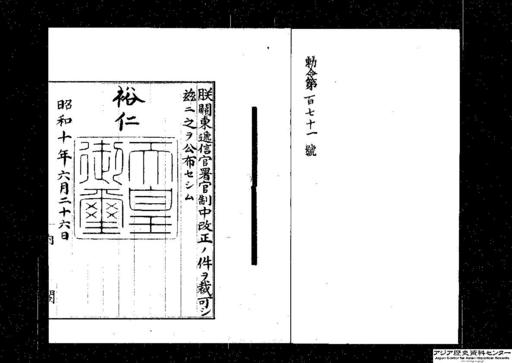 勅令第一百七十一號
朕關東遞信官署官制中改正ノ件ヲ裁可シ
玆ニ之ヲ公布セシム
裕仁
天皇
御璽
昭和十年六月二十六日
内閣
アジア歴史資料センター
Japan Center for Asian Historical Records